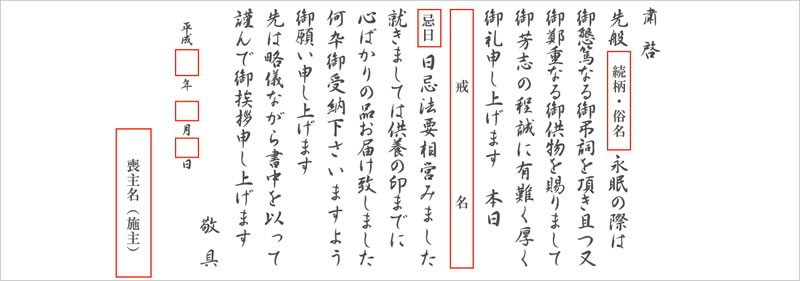 粛啓
先般 続柄・俗名 永眠の際は
御懇篤なる御弔詞を頂き且つ又
御鄭重なる御供物を賜りまして
御芳志の程誠に有難く厚く
御礼申し上げます 本日
戒名
忌日 日忌法要相営みました
就きましては供養の印までに
心ばかりの品お届け致しました
何卒御受納下さいますよう
御願い申し上げます
先は略儀ながら書中を以って
謹んで御挨拶申し上げます
敬具
平成 年 月 日
喪主名(施主)